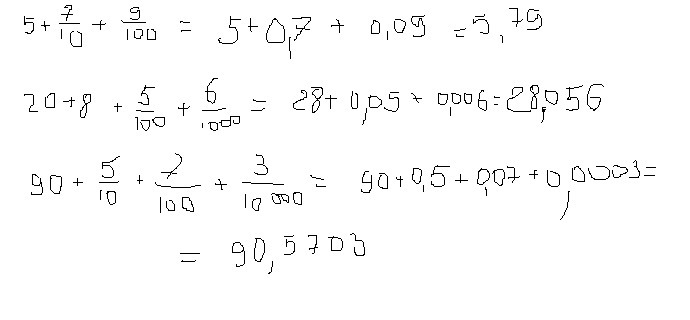 5 + 7/10 + 9/100 = 5 + 0,7 + 0,09 = 5,79
20 + 8 + 5/100 + 6/1000 = 28 + 0,05 + 0,006 = 28,056
90 + 5/10 + 7/100 + 3/10 000 = 90 + 0,5 + 0,07 + 0,0003 =
= 90,5703